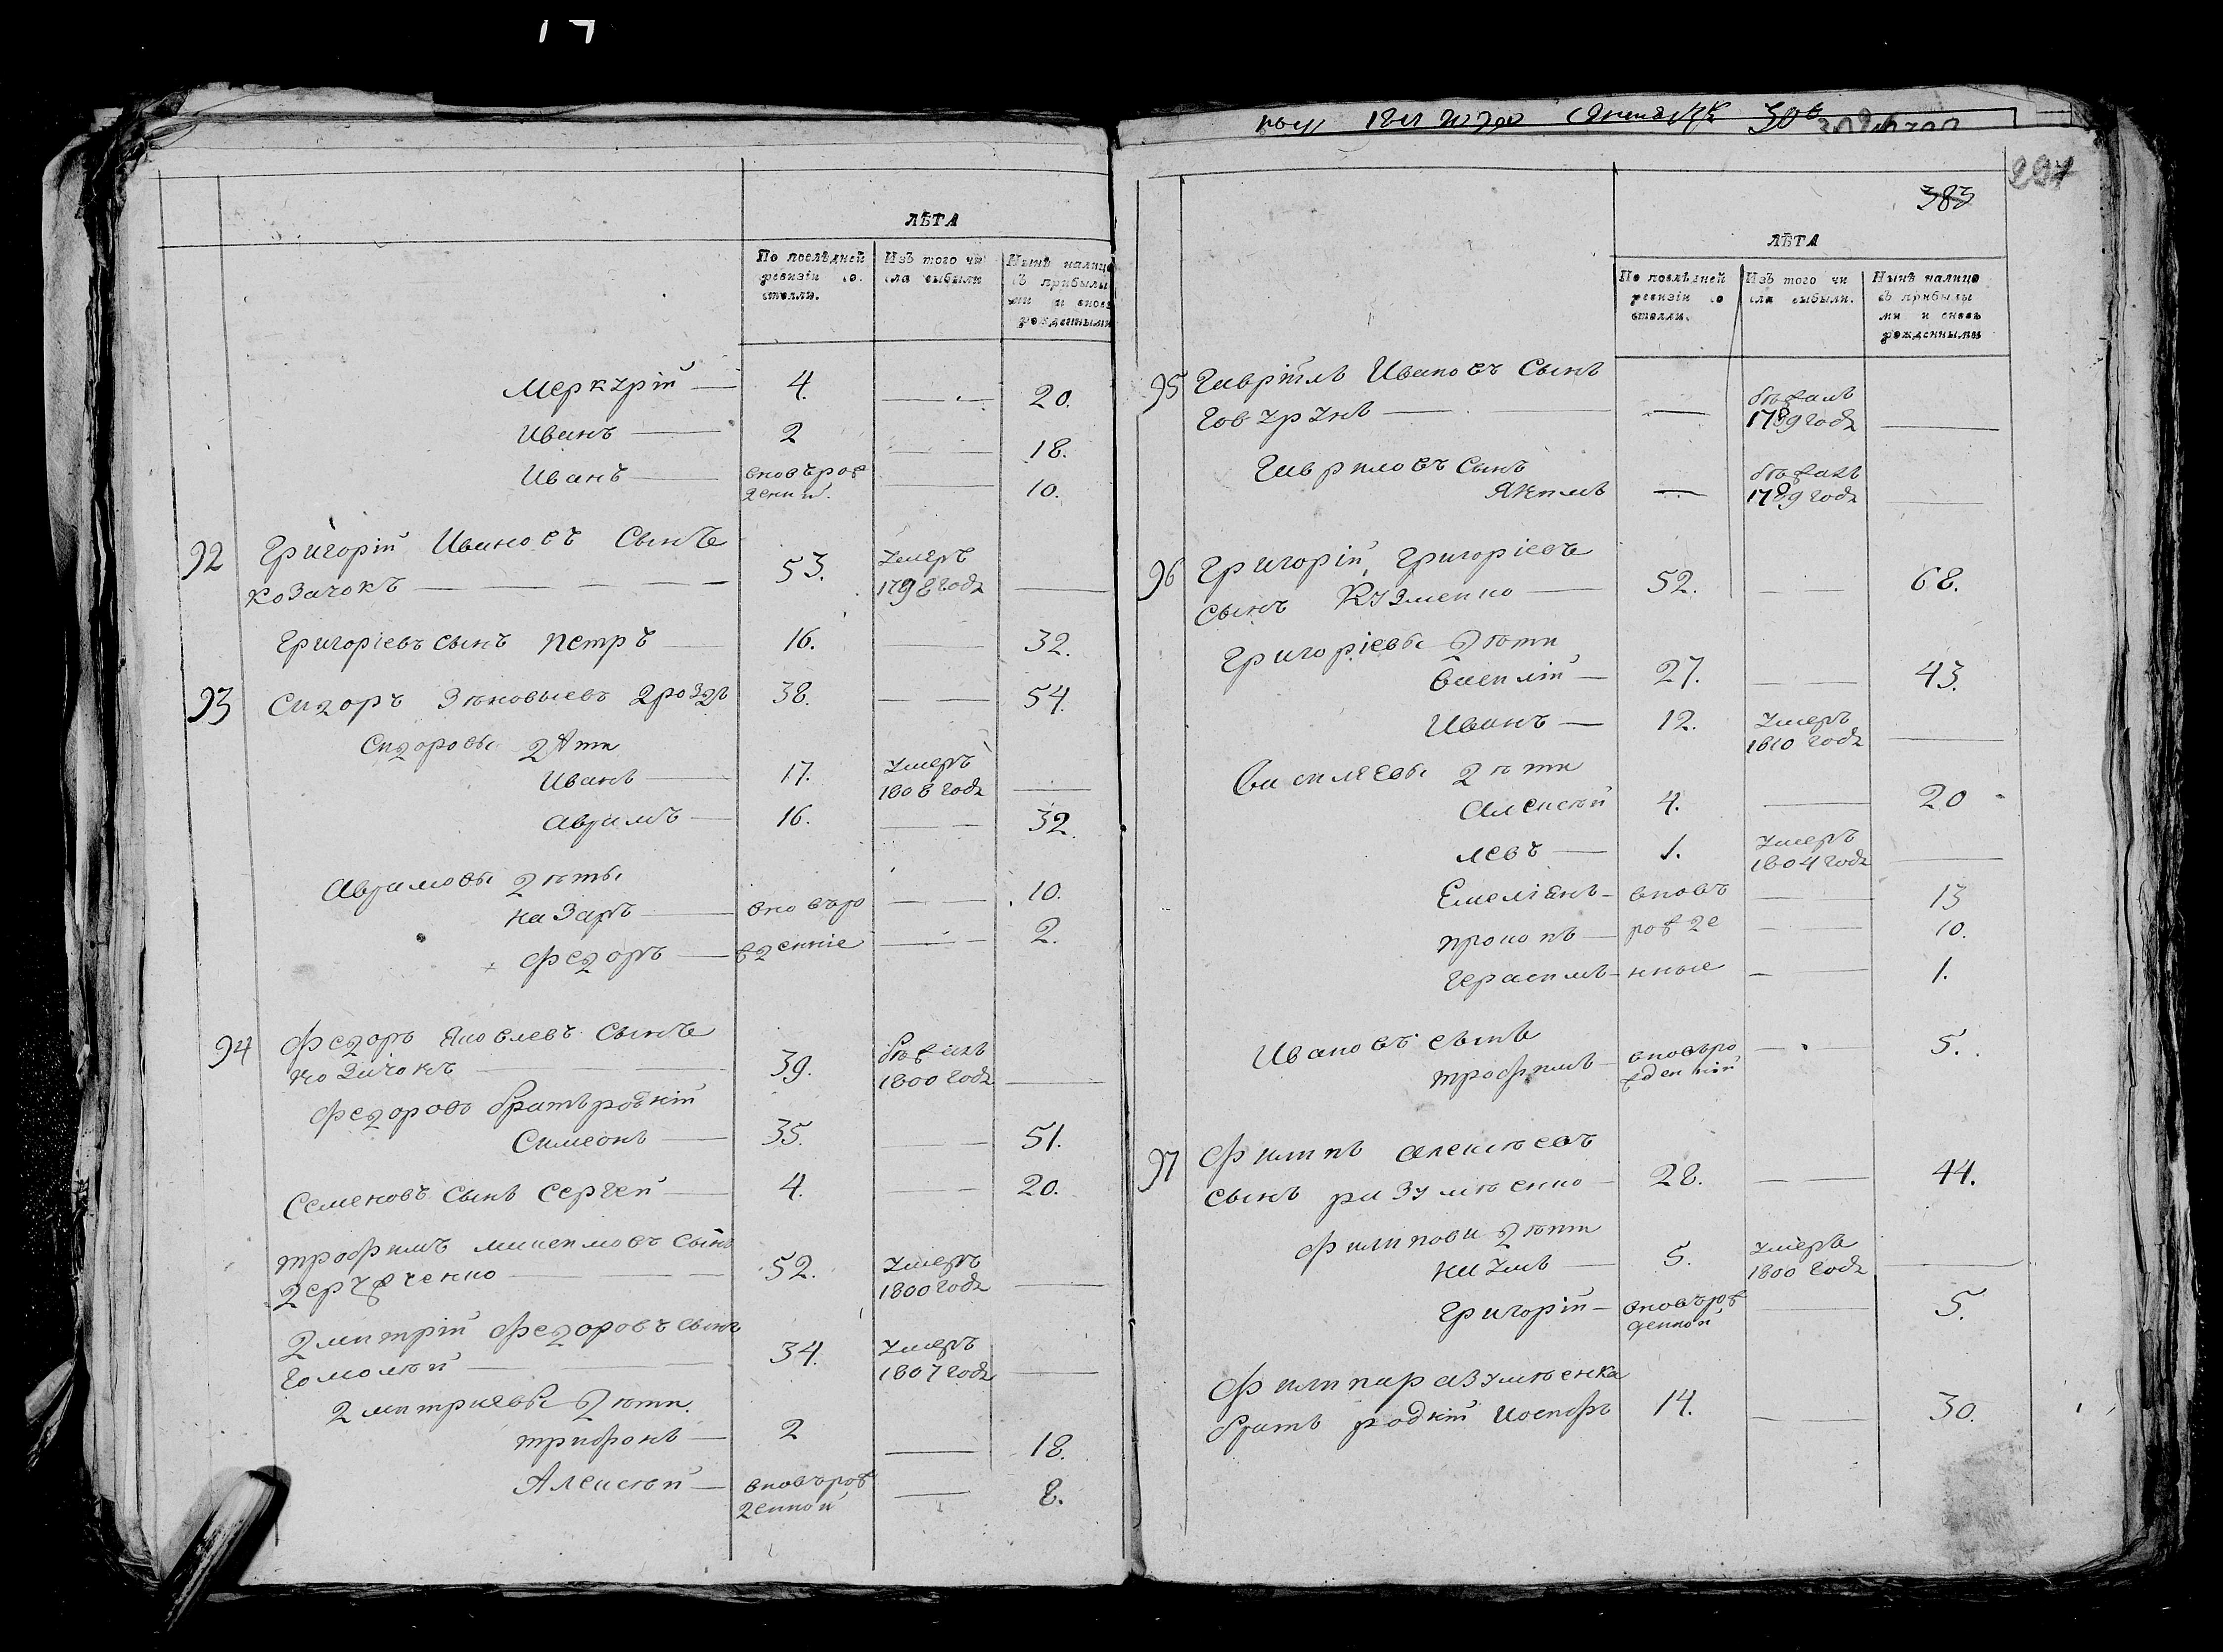 ЛѢТА
По послѣдней ревизіи со-
стояли.
Изъ того чи
сла выбыли
Нынѣ налицо
съ прибылы
ми и вновь
рожденными
Меркурій — 4. — 20.
Иванъ — 2 — 18.
Иванъ — вновърож
денній. — 10.
92 Григорій Ивановъ Сынъ
Козачокъ — 53. умеръ
1798 годꙋ —
Григоріевъ сынъ Петръ — 16. — 32.
93 Сидоръ Зѣновыевъ Дроздъ 38. — 54.
Сидоровы дѣти
Иванъ — 17. умеръ
1808 году —
Аврамъ — 16. — 32.
Аврамовы дѣты
Назаръ — вновъро — 10.
Федоръ — жденніе — 2.
94 Федоръ Яковлевъ Сынъ
Козачокъ — 39. бѣжалъ
1800 году —
Федоровъ братъ родній
Симеонъ — 35. — 51.
Семеновъ сынъ Сергей — 4. — 20.
Трофимъ Максимовъ сынъ
52. умеръ
1800 году —
Дмитрій Федоровъ сынъ
Гомолѣй — 34. умеръ
1807 году —
Дмитриевы дѣти.
Трифонъ — 2 — 18.
Алексѣй — вновърож
денной — 8.
383
ЛѢТА
По послѣдней
ревизіи со
стояли.
Изъ того чи
сла выбыли.
Нынѣ налицо
съ прибылы
ми и вновь
рожденными
95 Гаврііль Ивановъ Сынъ
Говурунъ — бѣжалъ
1789 году —
Гавриловъ сынъ
Якимъ — бѣжалъ
1789 году —
96 Григорій Григоріевъ
сынъ Кузменко — 52. — 68.
Григоріевы дѣти
Василій — 27. — 43.
Иванъ — 12. умеръ
1810 году —
Василяевы дѣти
Алексѣй 4. — 20
Левъ — 1. умеръ
1804 году —
Емеліянъ — вновъ — 13
Прокопъ — рожде — 10.
Герасимъ — нные — 1.
Ивановъ сынъ
Трофимъ — вновъро
жденній — 5.
97 Филипъ Алексѣевъ
сынъ Разумѣенко — 28. — 44.
Филипови дѣти
Наумъ — 5. умеръ
1800 году —
Григорій — вновърож
денной — 5.
Филипа Разумѣенка
братъ родній Иосифъ 14. — 30.